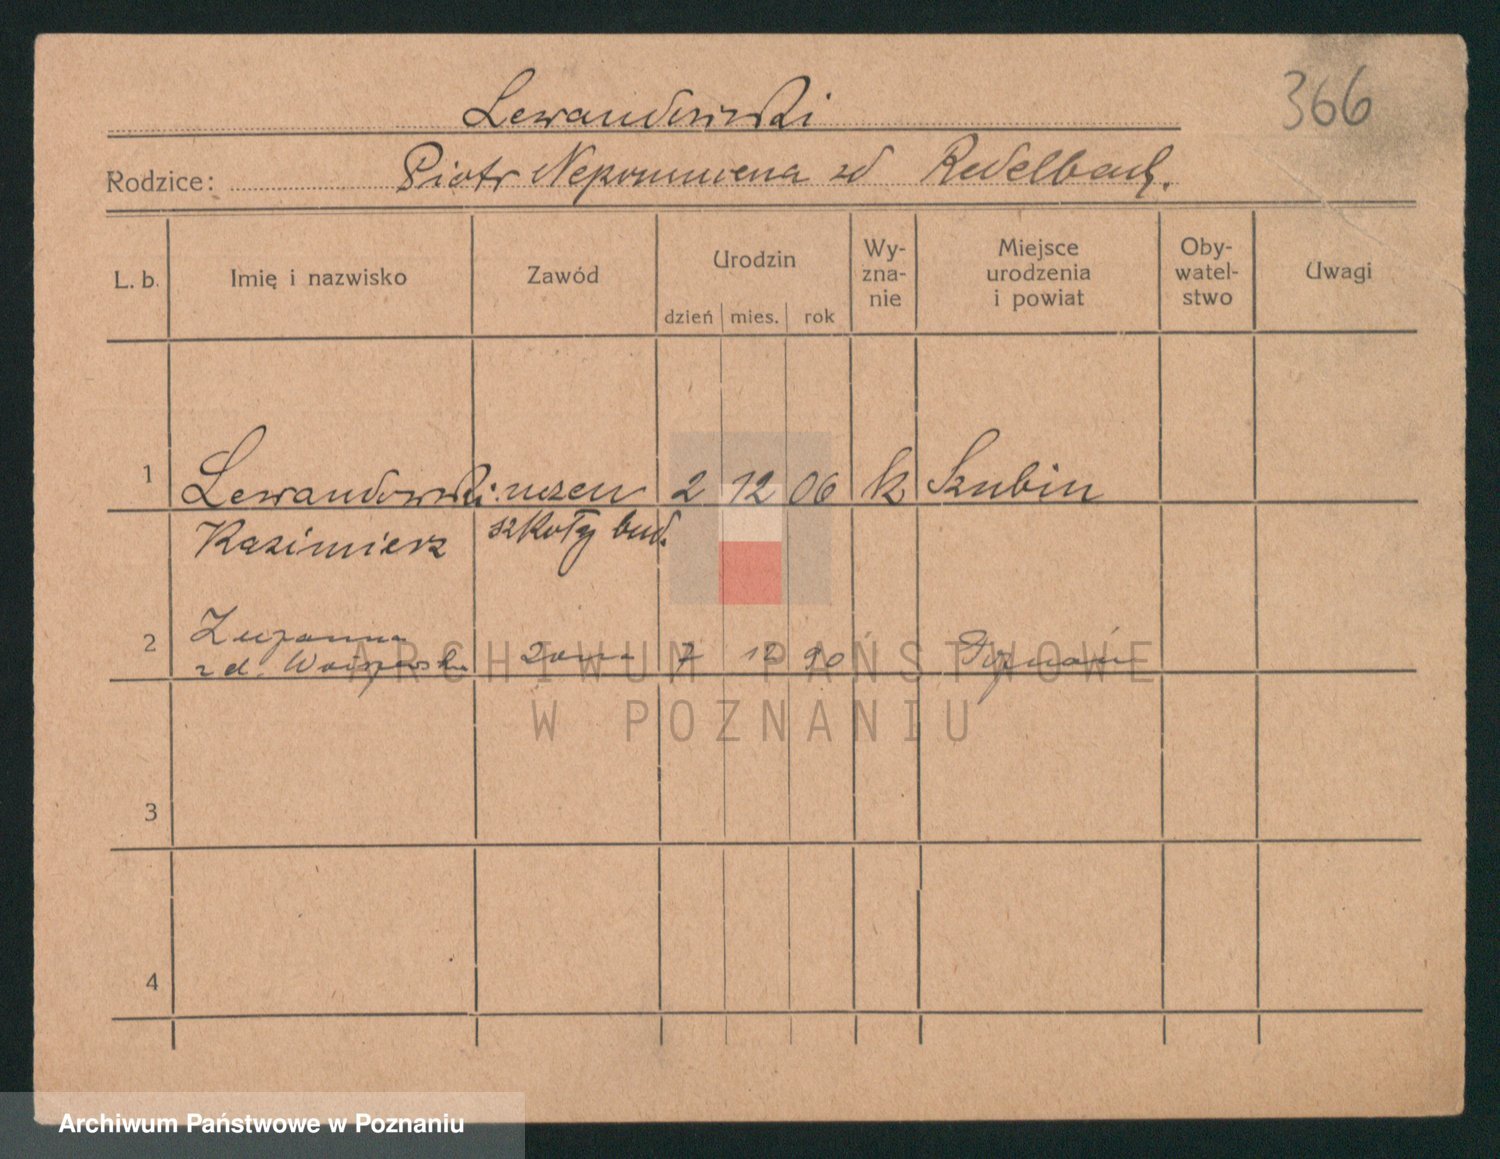 Lewandowski
366
Rodzice: Piotr Nepomucena zd Redelbach.
L. b. Imię i nazwisko Zawód Urodzin dzień mies. rok Wy-zna-nie Miejsce urodzenia i powiat Oby-watel-stwo Uwagi
1 Lewandowski uczeń 2 12 06 k Szubin
Kazimierz szkoły bud.
2 Zuzanna
zd. żona 7 12 90 Poznań
ARCHIWUM PAŃSTWOWE
W POZNANIU
3
4
Archiwum Państwowe w Poznaniu